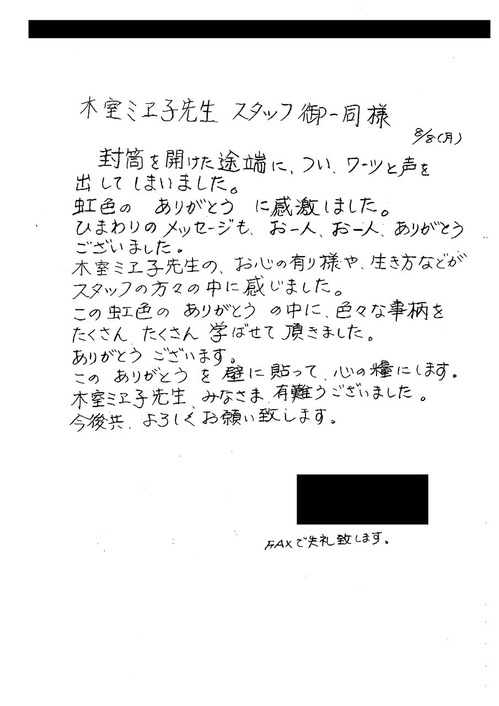 木室ミヱ子先生 スタッフ御一同様
8/8(月)
封筒を開けた途端に、つい、ワーッと声を
出してしまいました。
虹色の ありがとう に感激しました。
ひまわりのメッセージも、お一人、お一人、ありがとう
ございました。
木室ミヱ子先生の、お心の有り様や、生き方などが
スタッフの方々の中に感じました。
この虹色の ありがとう の中に、色々な事柄を
たくさん、たくさん 学ばせて頂きました。
ありがとう ございます。
この ありがとう を 壁に貼って、心の糧にします。
木室ミヱ子先生、みなさま、有難うございました。
今後共、よろしくお願い致します。
FAXで失礼致します。